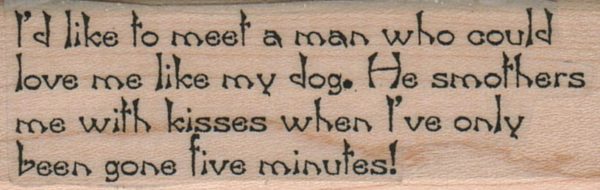 I'd like to meet a man who could
love me like my dog. He smothers
me with kisses when I've only
been gone five minutes!